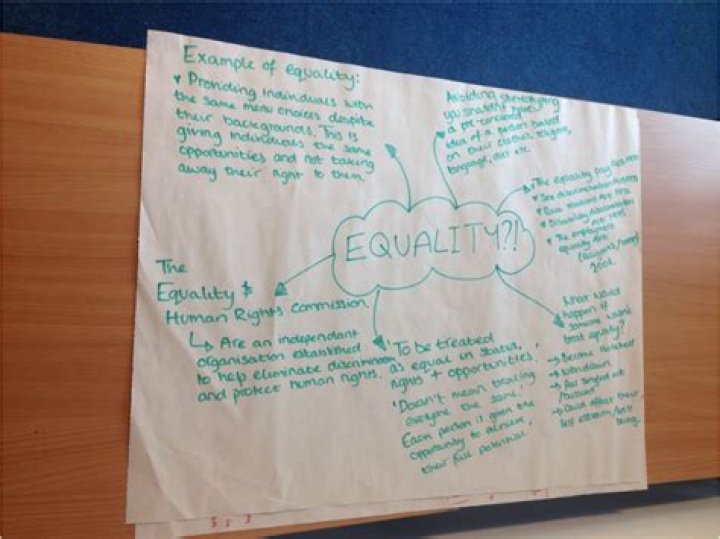 Example of equality:
• Providing individuals with
the same menu choices despite
their backgrounds. This is
giving individuals the same
opportunities and not taking
away their right to them.
Avoiding stereotyping
you shouldn't have
a pre-conceived
idea of a person based
on their clothes, religion,
language, diet etc.
The equality pay act 1970
• Sex discrimination Act 1975
• Race relations Act 1976
• Disability discrimination
Act 1995
• The employment
equality Act
EQUALITY?!
The
Equality &
Human Rights Commission.
↳ Are an independant
organisation established
to help eliminate discrimination
and protect human rights.
To be treated
as equal in status,
rights + opportunities.
'Doesn't mean treating
everyone the same.'
Each person is given the
opportunity to achieve
their full potential.
What would
happen if
someone wasn't
treat equally?
→ Become isolated
→ Withdrawn
→ Feel singled out
/bullied
→ Could affect their
self esteem/well
being.